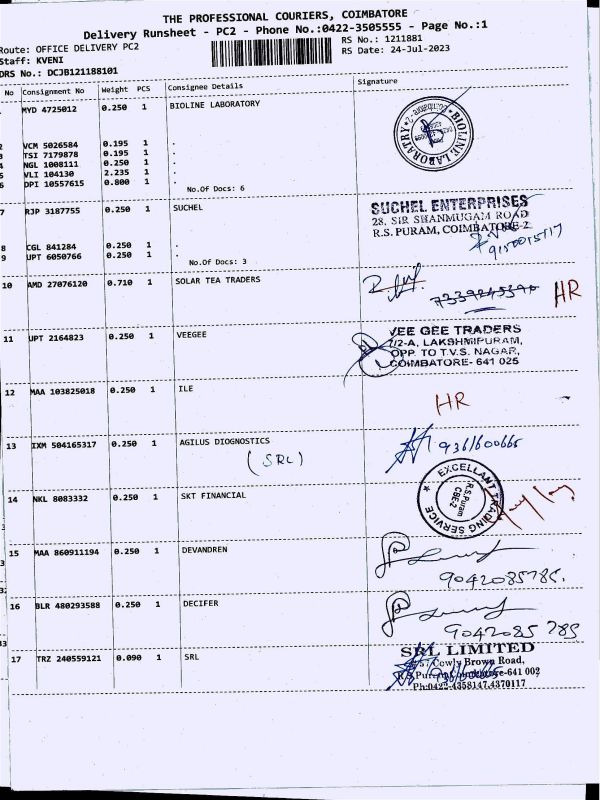 THE PROFESSIONAL COURIERS, COIMBATORE
Delivery Runsheet - PC2 - Phone No.:0422-3505555 - Page No.:1
Route: OFFICE DELIVERY PC2
RS No.: 1211881
Staff: KVENI
RS Date: 24-Jul-2023
DRS No.: DCJB121188101
No Consignment No Weight PCS Consignee Details Signature
MYD 4725012 0.250 1 BIOLINE LABORATORY
BIOLINE LABORATORY
2 VCM 5026584 0.195 1 .
3 TSI 7179878 0.195 1 .
4 NGL 1008111 0.250 1 .
5 VLI 104130 2.235 1 .
6 DPI 10557615 0.800 1 .
No.Of Docs: 6
7 RJP 3187755 0.250 1 SUCHEL
SUCHEL ENTERPRISES
28, SIR SHANMUGAM ROAD
R.S. PURAM, COIMBATORE-2
8 CGL 841284 0.250 1 .
9 UPT 6050766 0.250 1 .
No.Of Docs: 3
10 AMD 27076120 0.710 1 SOLAR TEA TRADERS
HR
11 UPT 2164823 0.250 1 VEEGEE
VEE GEE TRADERS
7/2-A, LAKSHMIPURAM,
OPP. TO T.V.S. NAGAR,
COIMBATORE- 641 025
12 MAA 103825018 0.250 1 ILE
HR
13 IXM 504165317 0.250 1 AGILUS DIOGNOSTICS
(SRL)
9361600665
14 NKL 8083332 0.250 1 SKT FINANCIAL
EXCELLANT TRADING SERVICE
R.S.Puram
CBE-2
15 MAA 860911194 0.250 1 DEVANDREN
9042085785.
16 BLR 480293588 0.250 1 DECIFER
9042085 785
17 TRZ 240559121 0.090 1 SRL
SRL LIMITED
Cowly Brown Road,
R.S.Puram, Coimbatore-641 002
Ph:0422-4358147,4370117